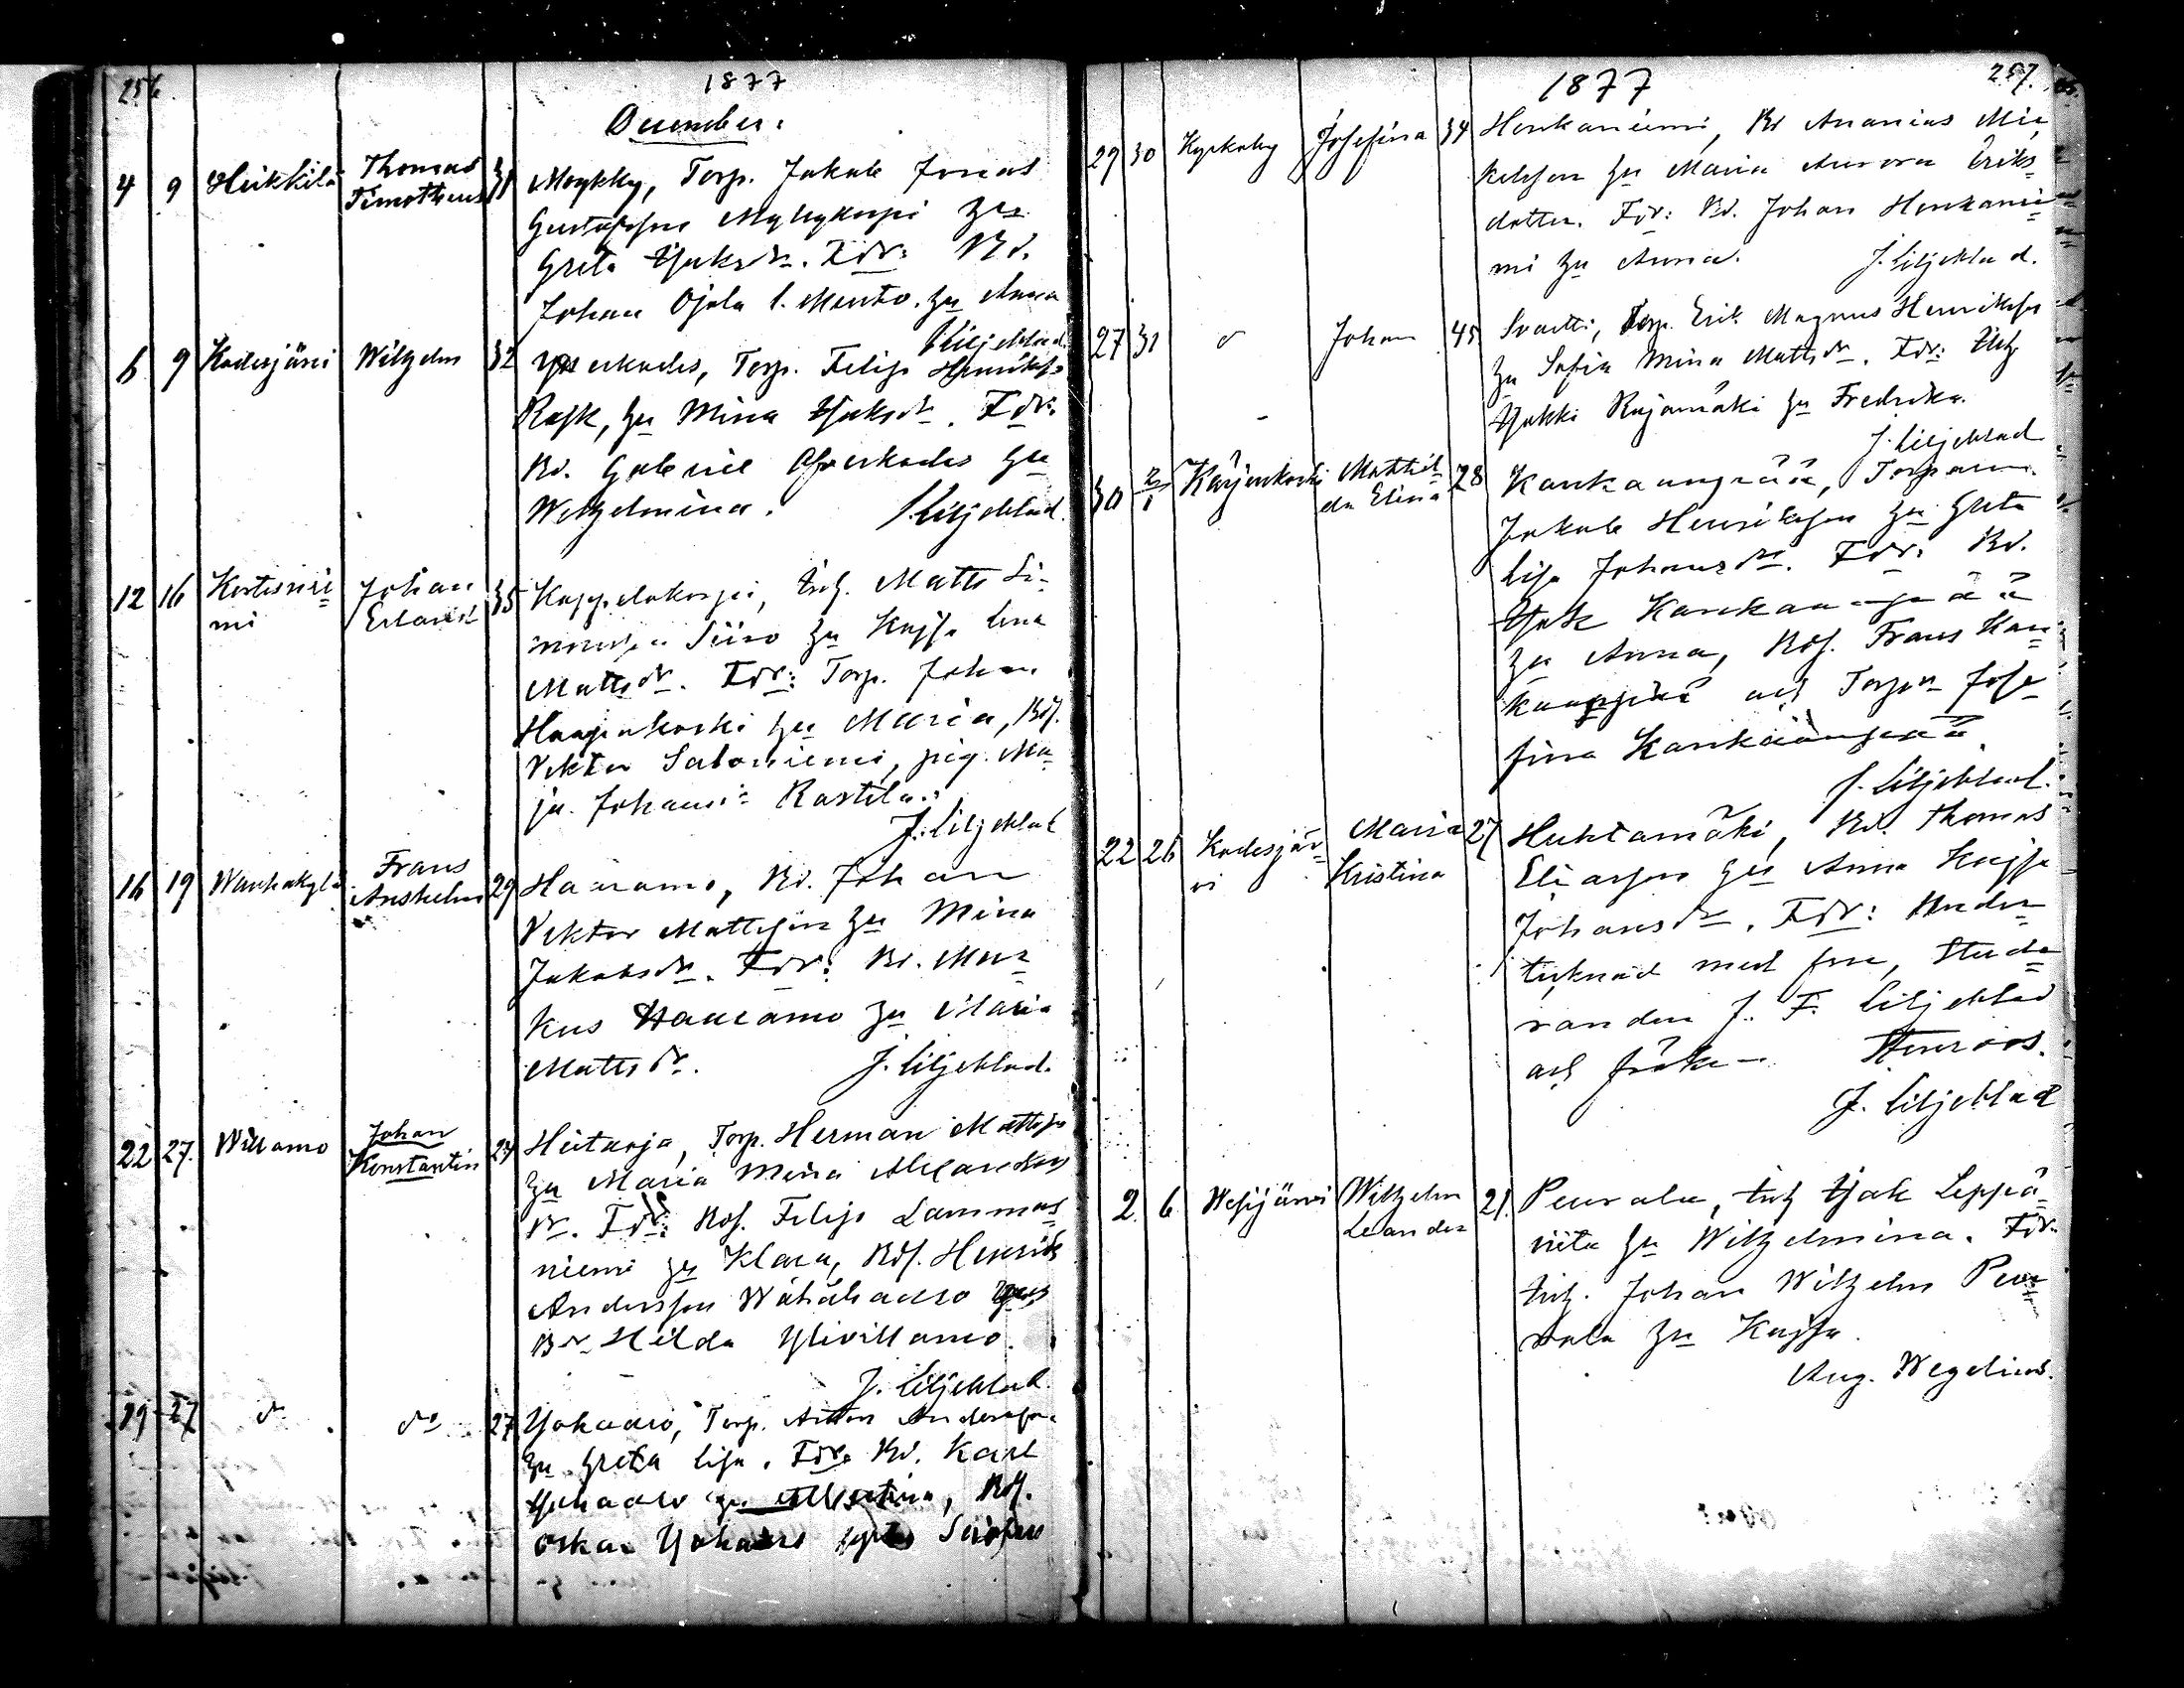 256.
1877
December.
4 9 Heikkilä Thomas Timotheus 31 Mÿkky, Torp. Jakob Jonas
Gustafsson Myllykoski hu
Greta Isaksdr. Fdr: Bd.
Johan Ojala l. Mento. hu Anna
J. Liljeblad.
6 9 Kadesjärvi Wilhelm 32 Torp. Filip Henriksson
Rajk, hu Mina Isaksdr. Fdr:
Bd. Gabriel hu
Wilhelmina. J. Liljeblad.
12 16 Johan Erland 35 Kappelakorpi, Inh. Matts Si-
monsson Siiro hu Kajsa Lena
Mattsdr. Fdr: Torp. Johan
Haapakoski hu Maria, Bds.
Vektor Saloniemi, pig. Ma-
ja Johanna Rastila.
J. Liljeblad
16 19 Wanhakylä Frans Anshelm 29 Haaramo, Bd. Johan
Vektor Mattsson hu Mina
Jakobsdr. Fdr: Bd. Mar-
kus Haaramo hu Maria
Mattsdr. J. Liljeblad.
22 27. Willamo Johan Konstantin 24 Hiitarja, Torp. Herman Mattsson
hu Maria Mina Alexanders
dr. Fdr: Bds. Filip Lammas-
niemi hu Klara, Bds. Henrik
Andersson Wähähaaro
Bdr Hilda Yliwillamo.
J. Liljeblad.
19 27 do do 27 Torp. Anton Andersson
hu Greta Lisa. Fdr: Bd. Karl
hu Albertina, Bds.
Oskar
1877
257.
29 30 Kyrkoby Josefina 34 Honkaniemi, Bd Ananias Mi-
kelsson hu Maria Aurora Eriks-
dotter. Fdr: Bd. Johan Honkanie-
mi hu Anna. J. Liljeblad.
27 31 do Johan 45 Svartti, Torp. Erik Magnus Henriksson
hu Sofia Mina Mattsdr. Fdr: Inh
Isakki Rajamäki hu Fredrika.
J. Liljeblad
30 2/1 Karjenkoski Mathil-da Elina 28 Kankaanpää, Torparen
Jakob Henriksson hu Greta
Lisa Johansdr. Fdr: Bd.
Isak Kankaanpää
hu Anna, Bds. Frans Kan-
kaanpää och Torpdr Jose-
fina Kankaanpää
J. Liljeblad.
22 26 Kadesjär-vi Maria Kristina 27 Huhtamäki, Bd. Thomas
Eliasson hu Anna Kajsa
Johansdr. Fdr: Under-
tecknad med fru, Stude-
randen J. F. Liljeblad
och fröken Stenroos.
J. Liljeblad
2. 6 Wesijärvi Wilhelm Leander 21. Peurala, inh Isak Leppä-
niitu hu Wilhelmina. Fdr.
inh. Johan Wilhelm Peu-
rala hu Kajsa.
Aug. Wegelius.